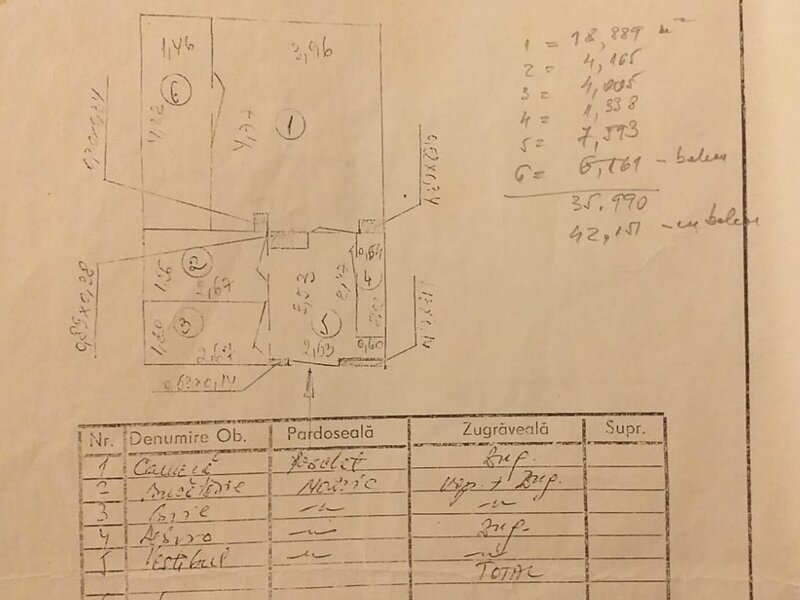 1,46
3,96
6
1
1 = 18,889
2 = 4,165
3 = 4,005
4 = 1,338
5 = 7,593
6 = 6,161 - balcon
35.990
42,151 - cu balcon
4,77
2
1,56
3
1,50
2,67
3,53
5
2,63
4
0,64
0,60
0,53x0,14
Nr. Denumire Ob. Pardoseală Zugrăveală Supr.
1 Cameră Parchet Zug.
2 Bucătărie Mozaic Vop. + Zug.
3 Baie -"- -"-
4 -"- Zug.
5 Vestibul -"- -"-
TOTAL